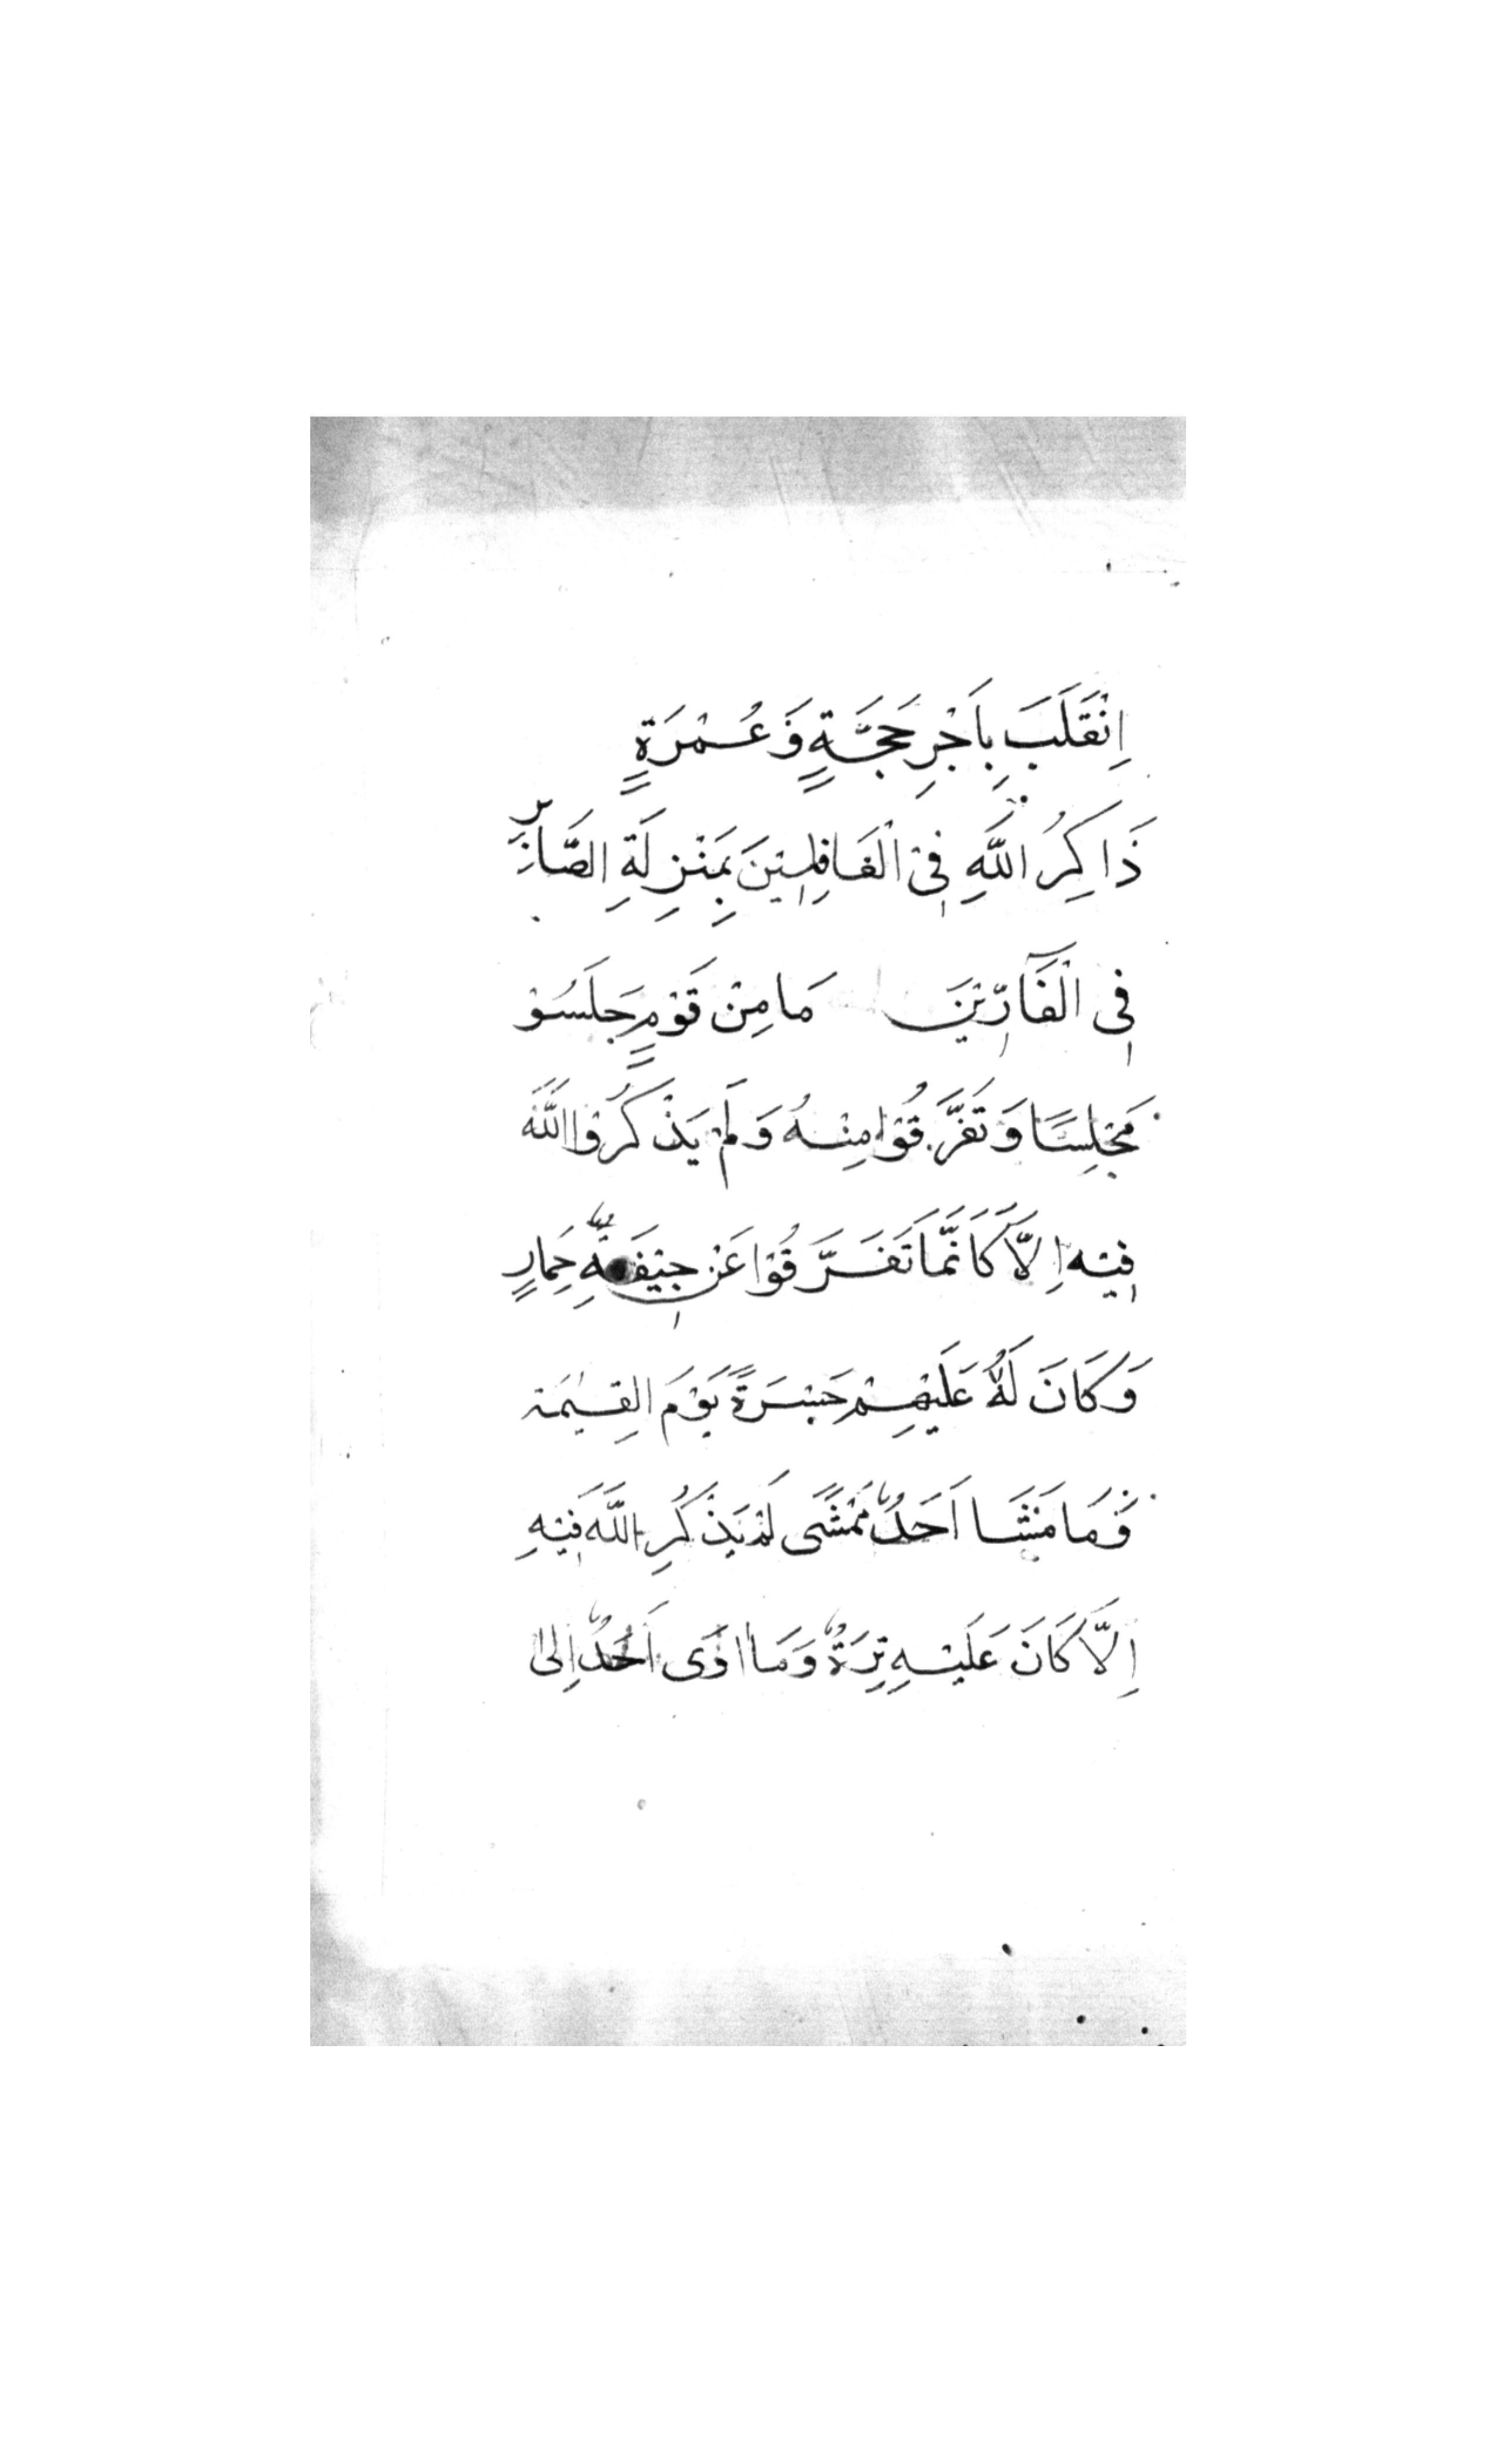 اِنْقَلَبَ بِاَجْرِ حَجَّةٍ وَ عُمْرَةٍ
ذَاكِرُ اللّٰهِ فِى الْغَافِلِيْنَ بِمَنْزِلَةِ الصَّابِرِ
فِى الْفَآرِّيْنَ مَا مِنْ قَوْمٍ جَلَسُوْ
مَجْلِسًا وَ تَفَرَّقُوْا مِنْهُ وَلَمْ يَذْكُرُوا اللّٰهَ
فِيْهِ اِلَّا كَاَنَّمَا تَفَرَّقُوْا عَنْ جِيْفَةِ حِمَارٍ
وَكَانَ لَهُ عَلَيْهِمْ حَسْرَةً يَوْمَ الْقِيٰمَة
وَمَا مَشَا اَحَدٌ مَمْشًى لَمْ يَذْكُرِ اللّٰهَ فِيْهِ
اِلَّا كَانَ عَلَيْهِ تِرَةٌ وَمَا اوَى اَحَدٌ اِلىٰ